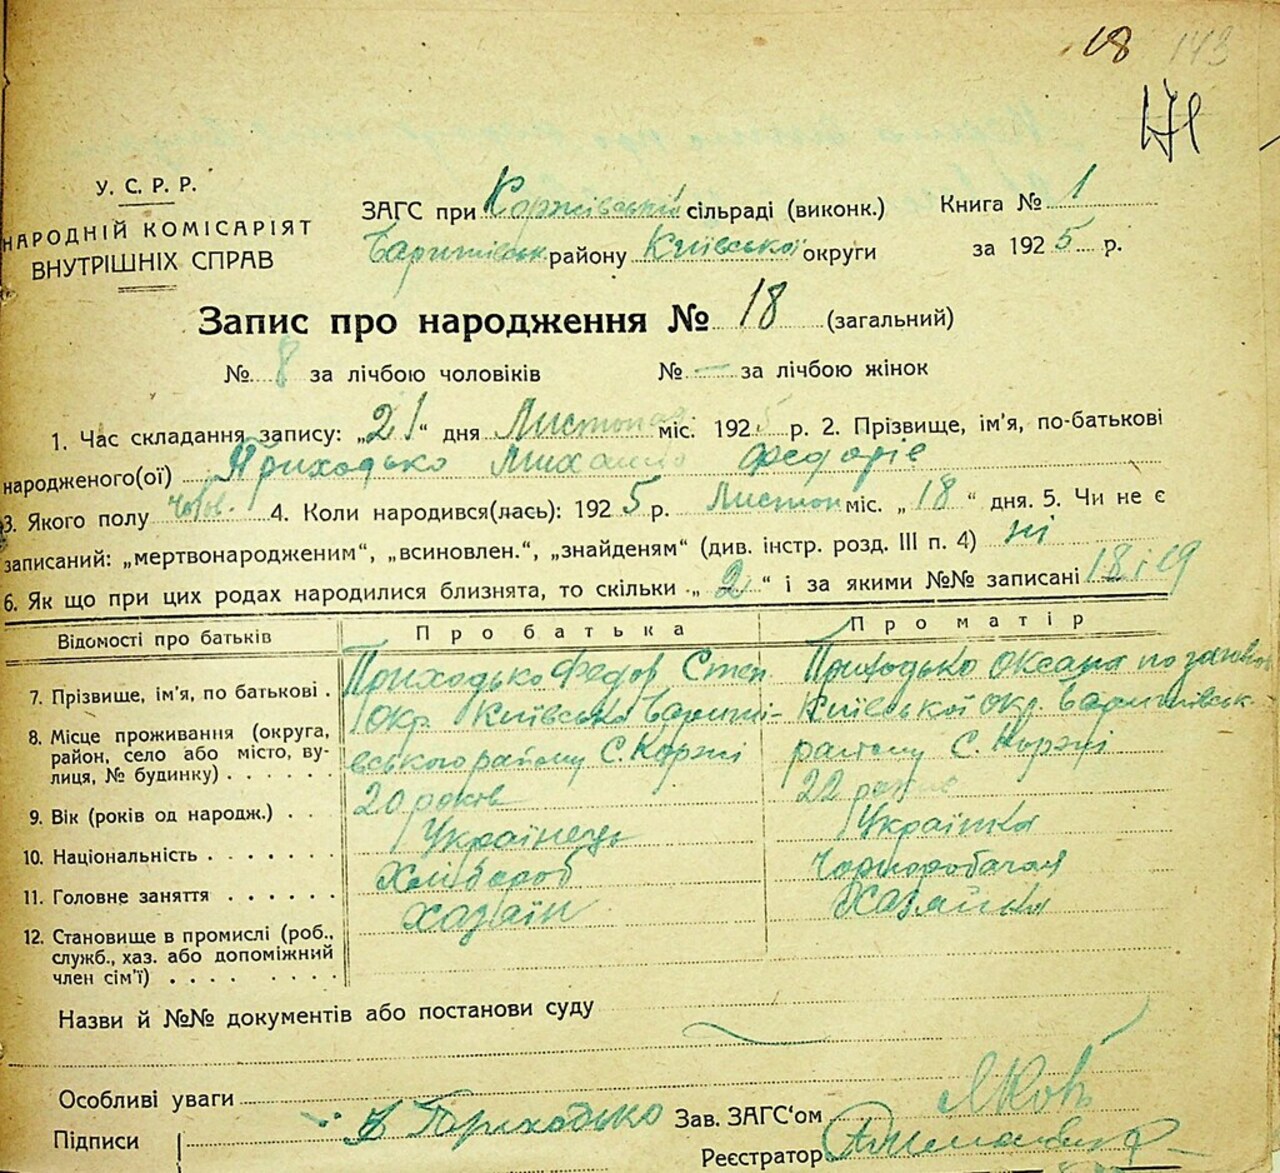 18 143
У. С. Р. Р.
НАРОДНІЙ КОМІСАРІЯТ
ВНУТРІШНІХ СПРАВ
ЗАГС при Коржівській сільраді (виконк.) Книга № 1
Баришівськ району Київської округи за 1925 р.
Запис про народження № 18 (загальний)
№ 8 за лічбою чоловіків № — за лічбою жінок
1. Час складання запису: „21“ дня Листопад міс. 1925 р. 2. Прізвище, ім'я, по-батькові
народженого(ої) Приходько Михайло Федоріє
3. Якого полу чолов. 4. Коли народився(лась): 1925 р. Листоп міс. „18“ дня. 5. Чи не є
записаний: „мертвонародженим“, „всиновлен.“, „знайденям“ (див. інстр. розд. III п. 4) ні
6. Як що при цих родах народилися близнята, то скільки „2“ і за якими №№ записані 18 і 19
Відомості про батьків Про батька Про матір
7. Прізвище, ім'я, по батькові . Приходько Федор Степ Приходько Оксана по
8. Місце проживання (округа, район, село або місто, вулиця, № будинку) . . . . . . Окр. Київська Баришівського району С. Коржі Київської Окр. Баришівськ. району С. Коржі
9. Вік (років од народж.) . . 20 років 22 років
10. Національність . . . . . . . Українець Українка
11. Головне заняття . . . . . . Хлібороб Чорноробочая
12. Становище в промислі (роб., служб., хаз. або допоміжний член сім'ї) . . . . . . . . Хазаїн Хазяйка
Назви й №№ документів або постанови суду
Особливі уваги
Підписи Приходько Зав. ЗАГС'ом
Реєстратор